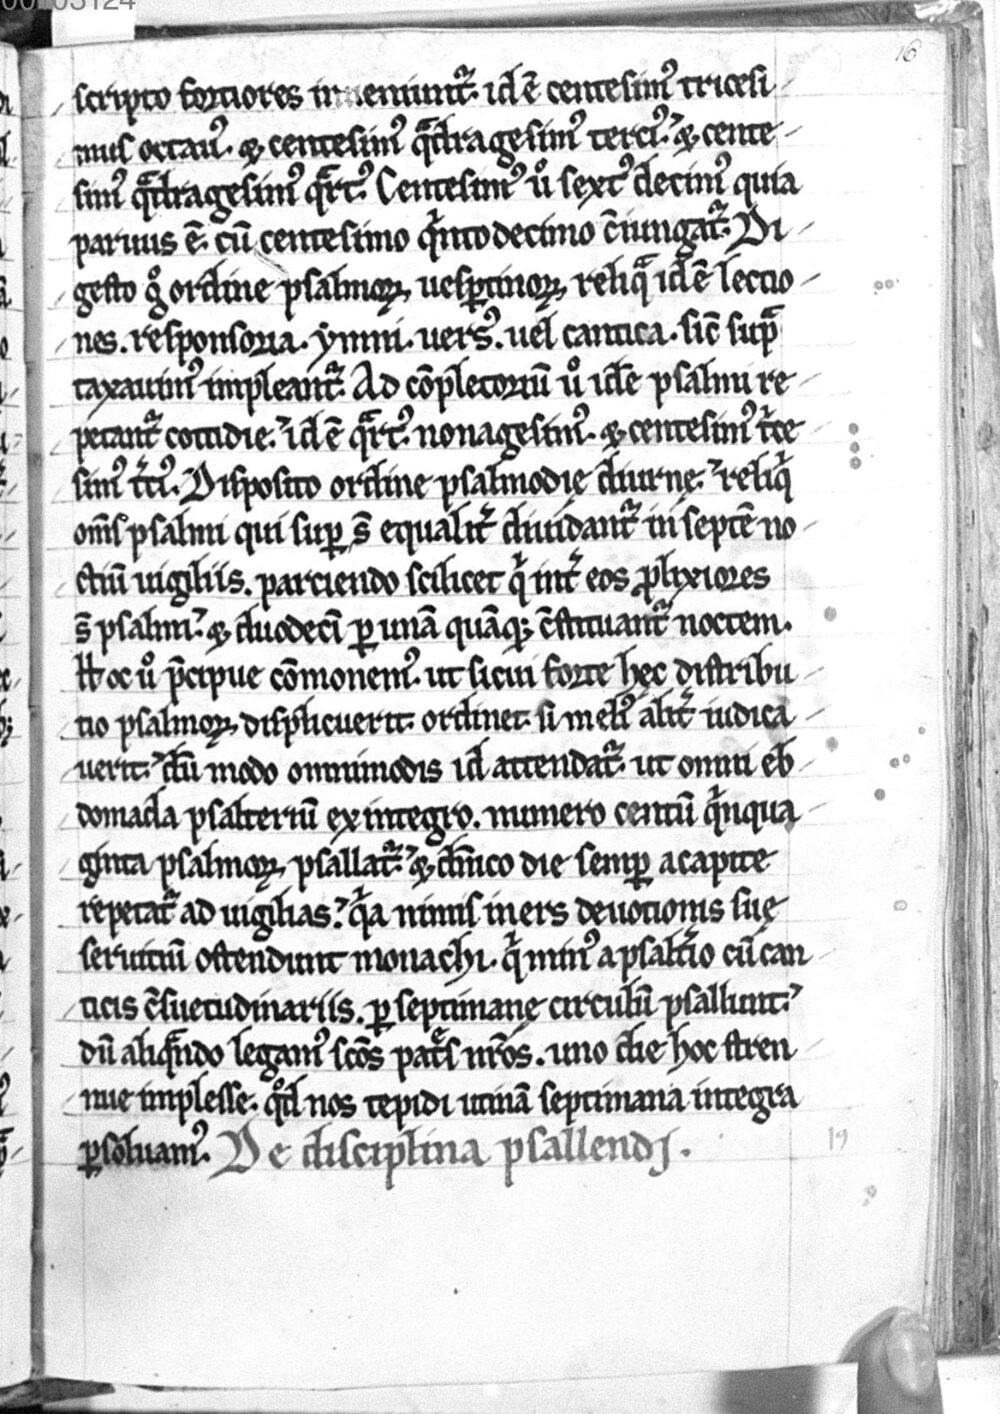 16
scripto fortiores inueniunt᷑. id ē centesimꝰ tricesi
mus octauꝰ. ⁊ centesimꝰ qᷓdragesimꝰ terciꝰ. ⁊ cente
simꝰ qᷓdragesimꝰ qᷓrtꝰ. Centesimꝰ uͦ sextꝰ decimꝰ quia
paruus ē. cū centesimo qͥnto decimo c̄iungat᷑. Di
gesto gͦ ordine psalmoꝝ uesꝑtinoꝝ, reliqᷓ id ē lectio
nes. responsoria. ymni. uersꝰ. uel cantica. sic̄ supᷓ
taxauimꝰ impleant᷑. Ad cōpletoriū uͦ idē psalmi re
petant᷑ cottidie. id ē qᷓrtꝰ. nonagesimꝰ. ⁊ centesimꝰ t͛ce
simꝰ t͛ciꝰ. Disposito ordine psalmodię diurnę. reliqͥ
om̄s psalmi qui suꝑ s̄ equalit͛ diuidant᷑ in septē no
ctiū uigiliis. parciendo scilicet qͥ int͛ eos ꝓlixiores
s̄ psalmi. ⁊ duodecī ꝑ unā quāqꝫ c̄stituant᷑ noctem.
Hoc uͦ p̄cipue cōmonemꝰ. ut si cui forte hęc distribu
tio psalmoꝝ displicuerit. ordinet. si meliꝰ alit͛ iudica
uerit. dū modo omnimodis id attendat᷑. ut omni eb
domada psalteriū ex integro. numero centū qͥnqua
ginta psalmoꝝ psallat᷑. ⁊ dn̄ico die semꝑ a capite
repetat᷑ ad uigilias. qͥa nimis iners deuotionis suę
seruitiū ostendunt monachi. qͥ minꝰ a psalt͛io cū can
ticis c̄suetudinariis. ꝑ septimane circulū psallunt.
dū aliqᷓndo legamꝰ scōs pat͛s nr̄os. uno die hoc stren
nue implesse. qͦd nos tepidi utinā septimana integra
ꝑsoluamꝰ. De disciplina psallendi.
19